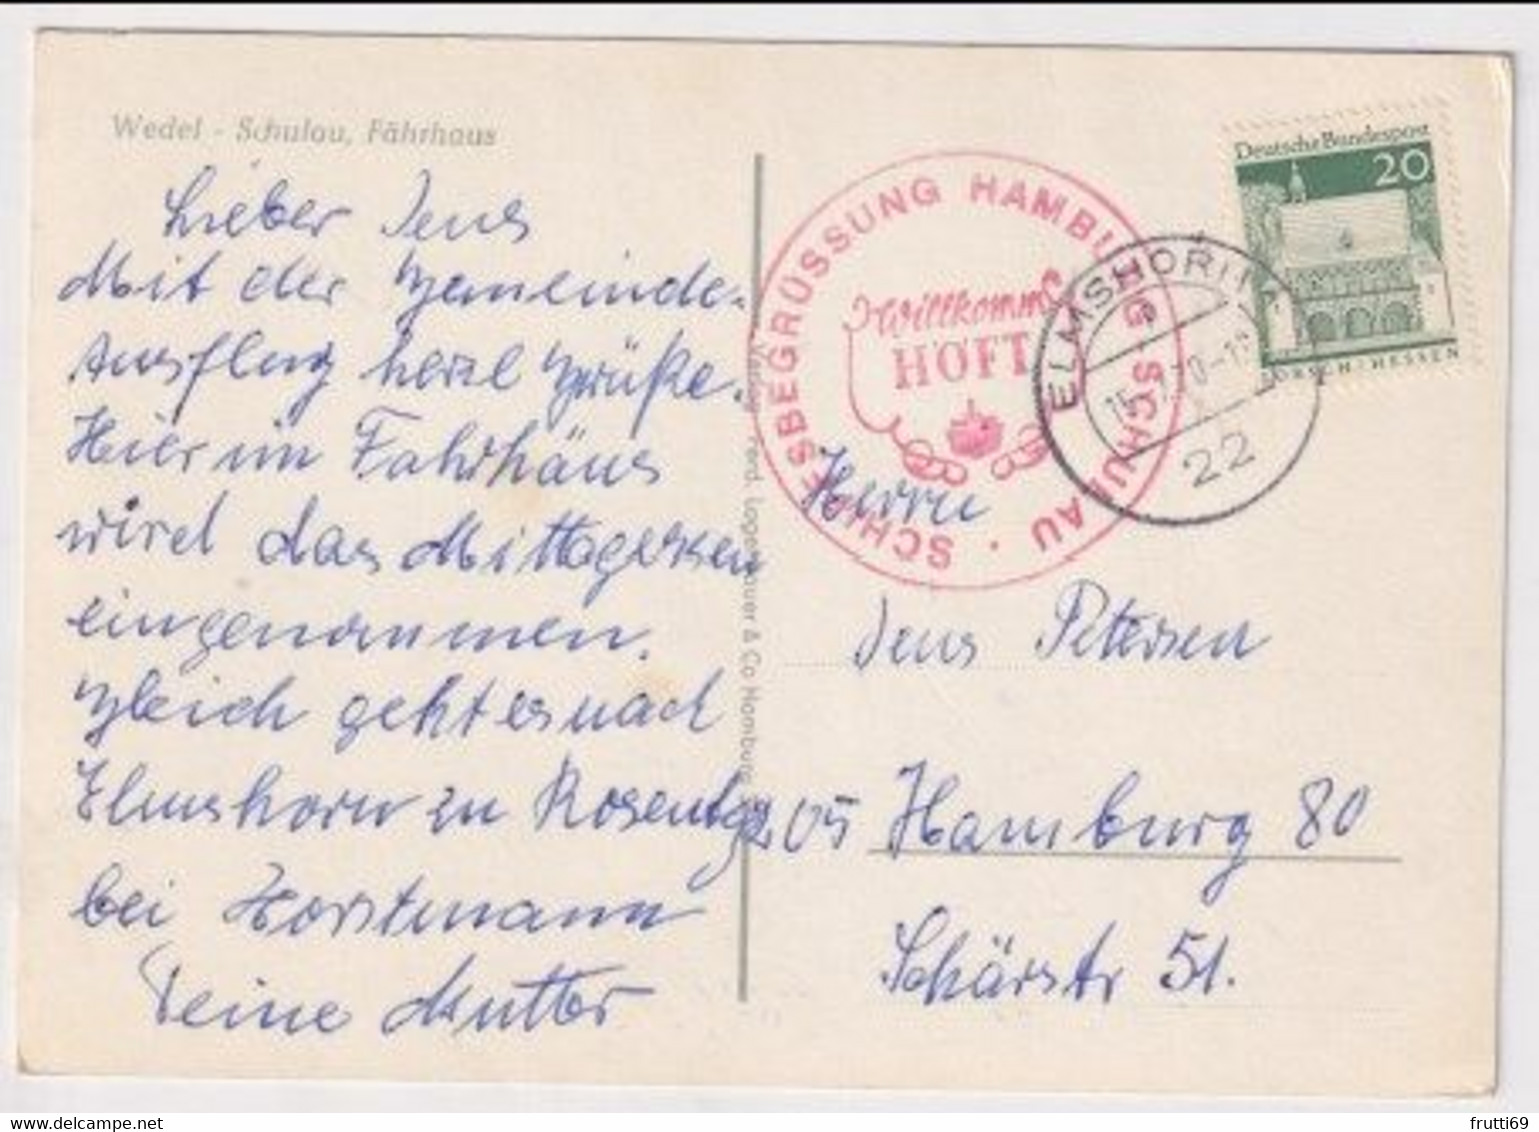 Wedel - Schulau, Fährhaus
Lieber Jens
Mit der Gemeinde-
Ausflug herzl Grüße.
Hier im Fahrhäus
wird das Mittagessen
eingenommen.
Gleich geht es nach
Elmshorn zu Rosentag
bei Horstmann
Deine Mutter
Verlag Ferd. Lagerbauer & Co Hamburg
SCHIFFSBEGRÜSSUNG HAMBURG SCHULAU
Willkomm
HÖFT
ELMSHORN
22
Deutsche Bundespost
20
LORSCH/HESSEN
Herrn
Jens Petersen
205 Hamburg 80
Schärstr 51.
frutti69